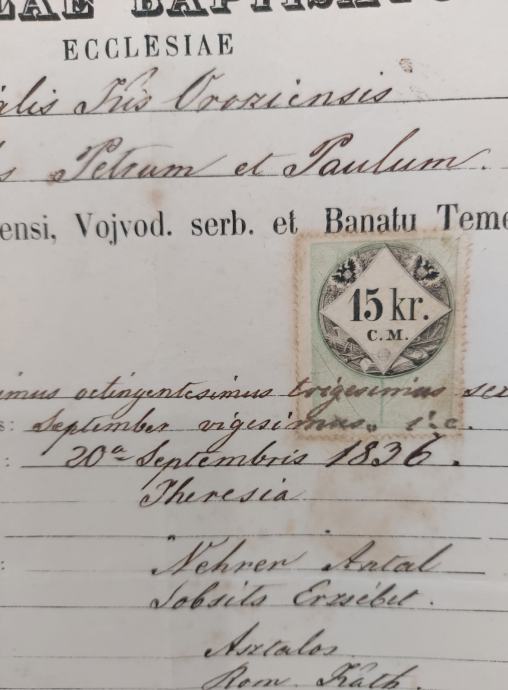 BAPTISATO
ECCLESIAE
alis Kis Orosziensis
s Petrum et Paulum.
ensi, Vojvod. serb. et Banatu Teme
15 kr.
C.M.
simus octingentesimus trigesimus sex
s: September vigesimus. i. e.
: 20a Septembris 1836.
Theresia
: Nehrer Antal
Erzsébet.
Asztalos
Rom. Kath.